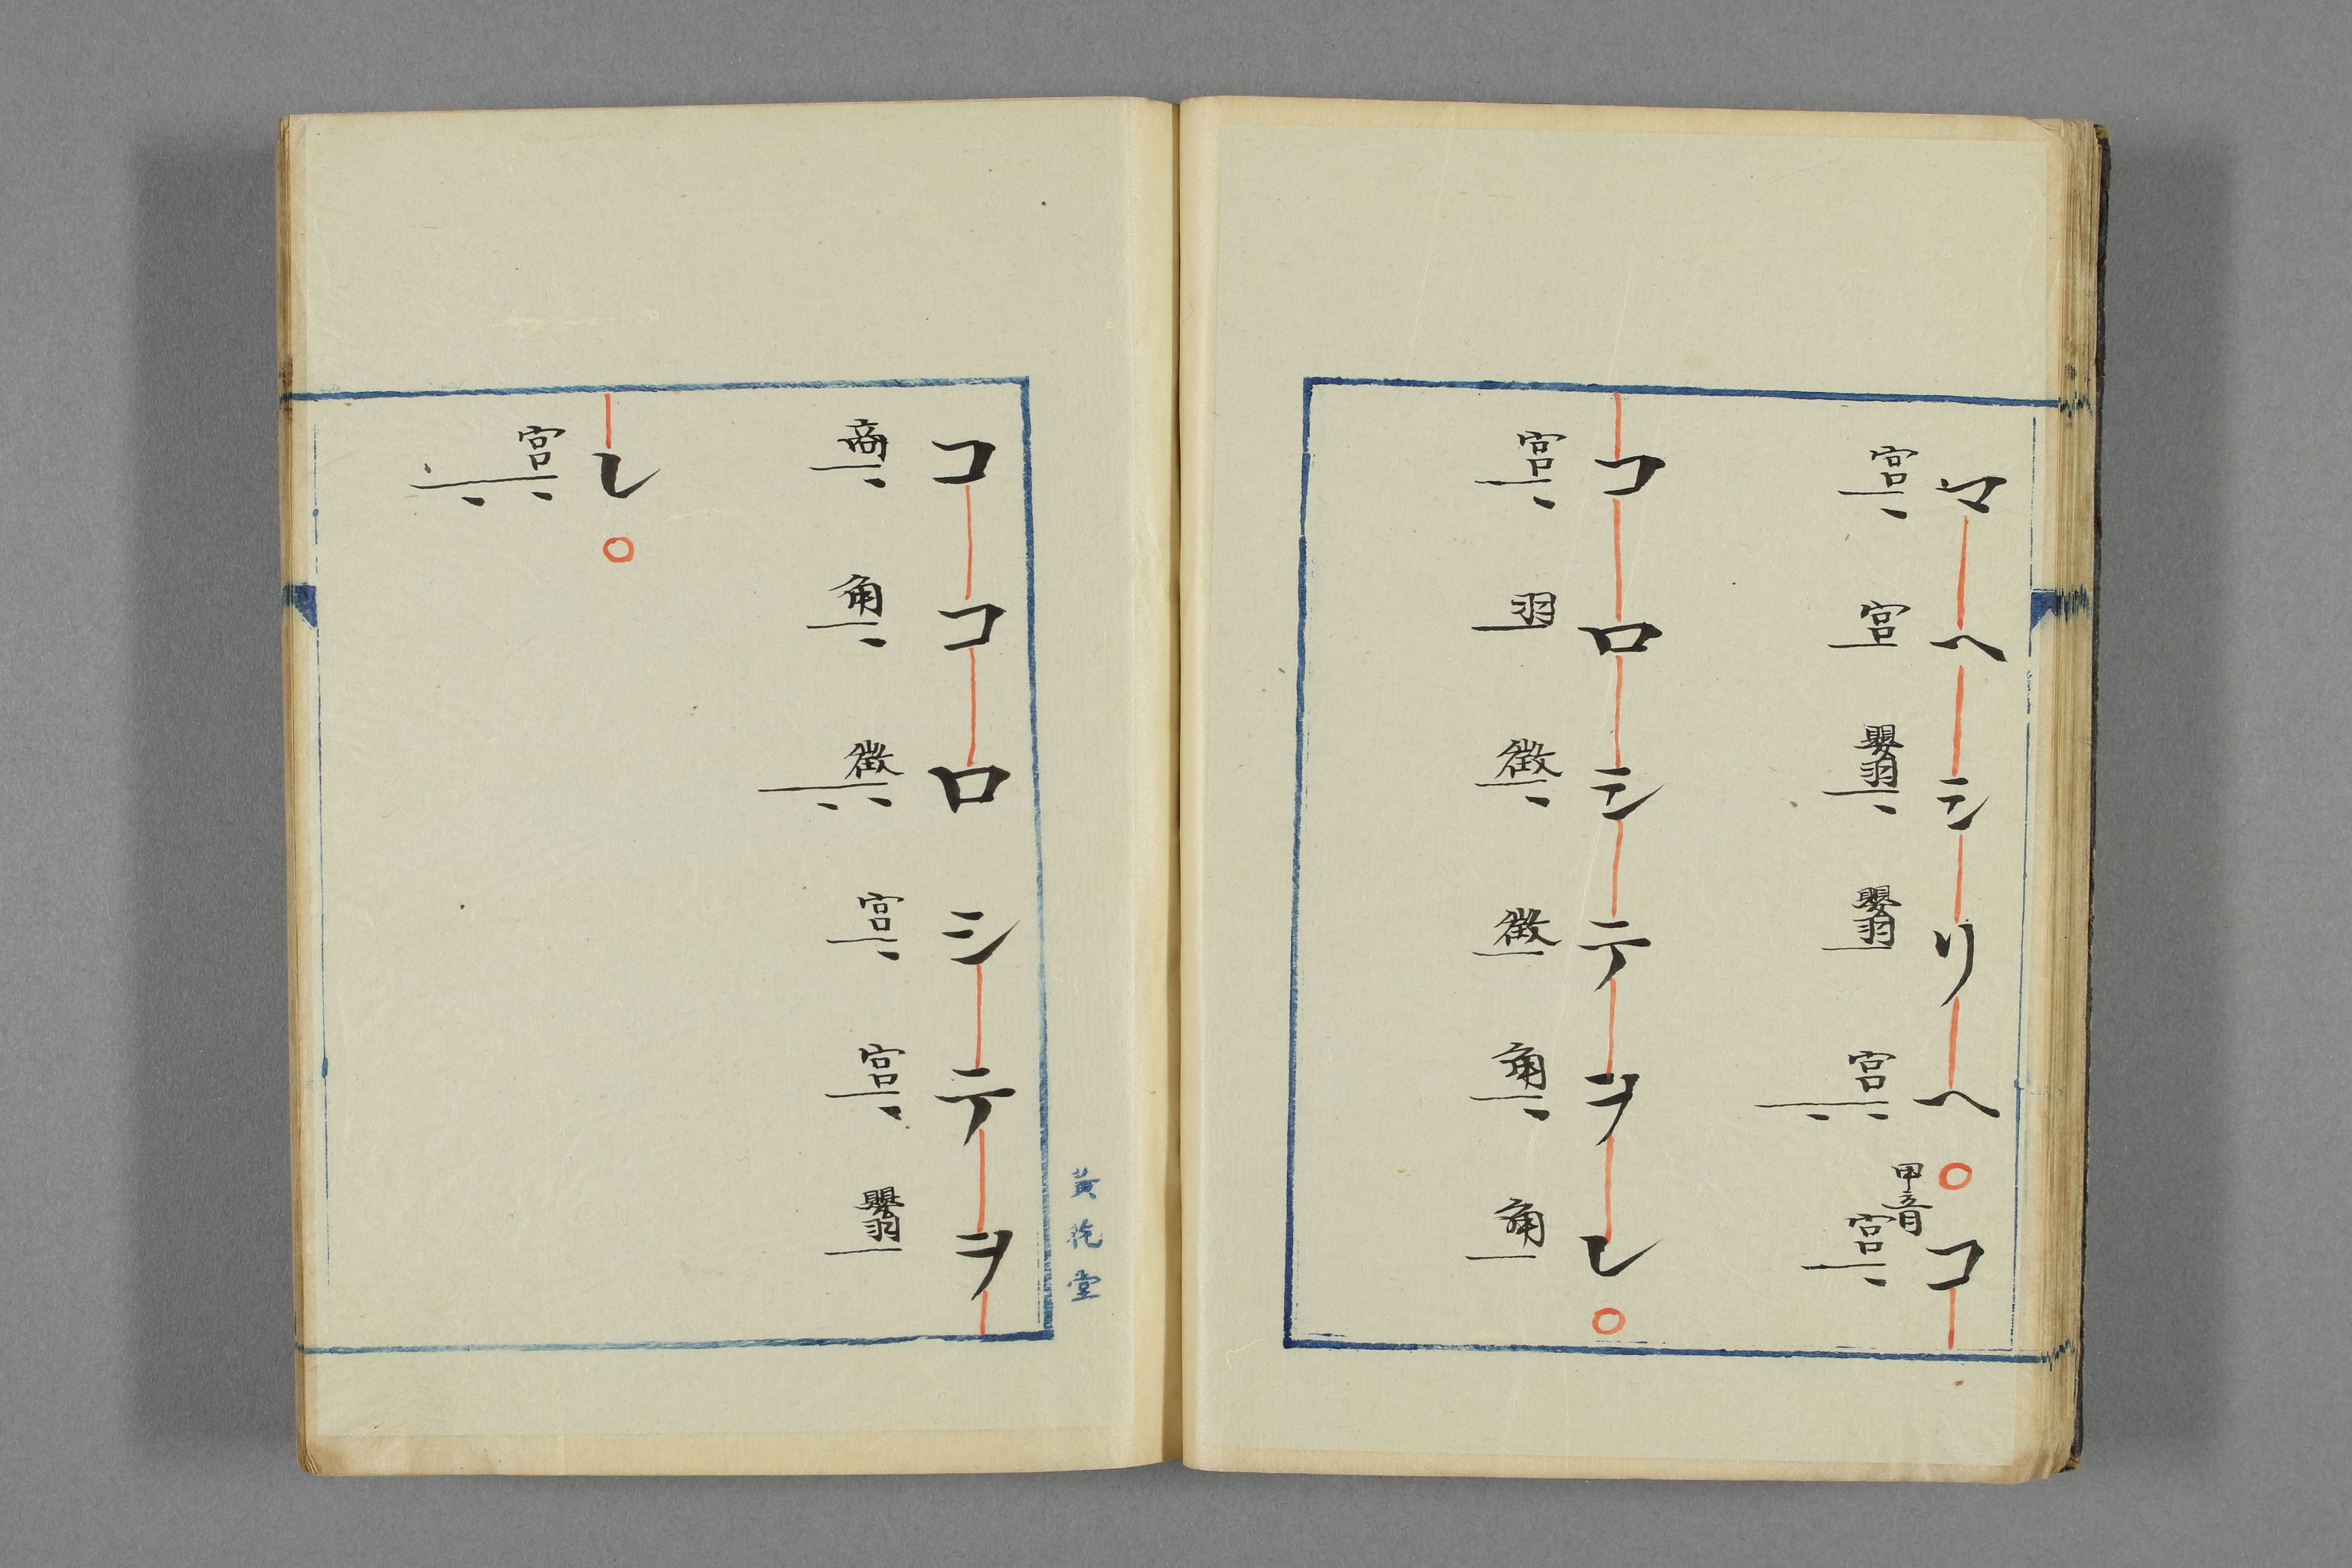 マヘシリヘ○コ
宮宮嬰羽嬰羽宮甲音宮
コロシテヲレ○
宮羽徴徴角角
黄堂
ココロシテヲ
商角徴宮宮嬰羽
レ○
宮